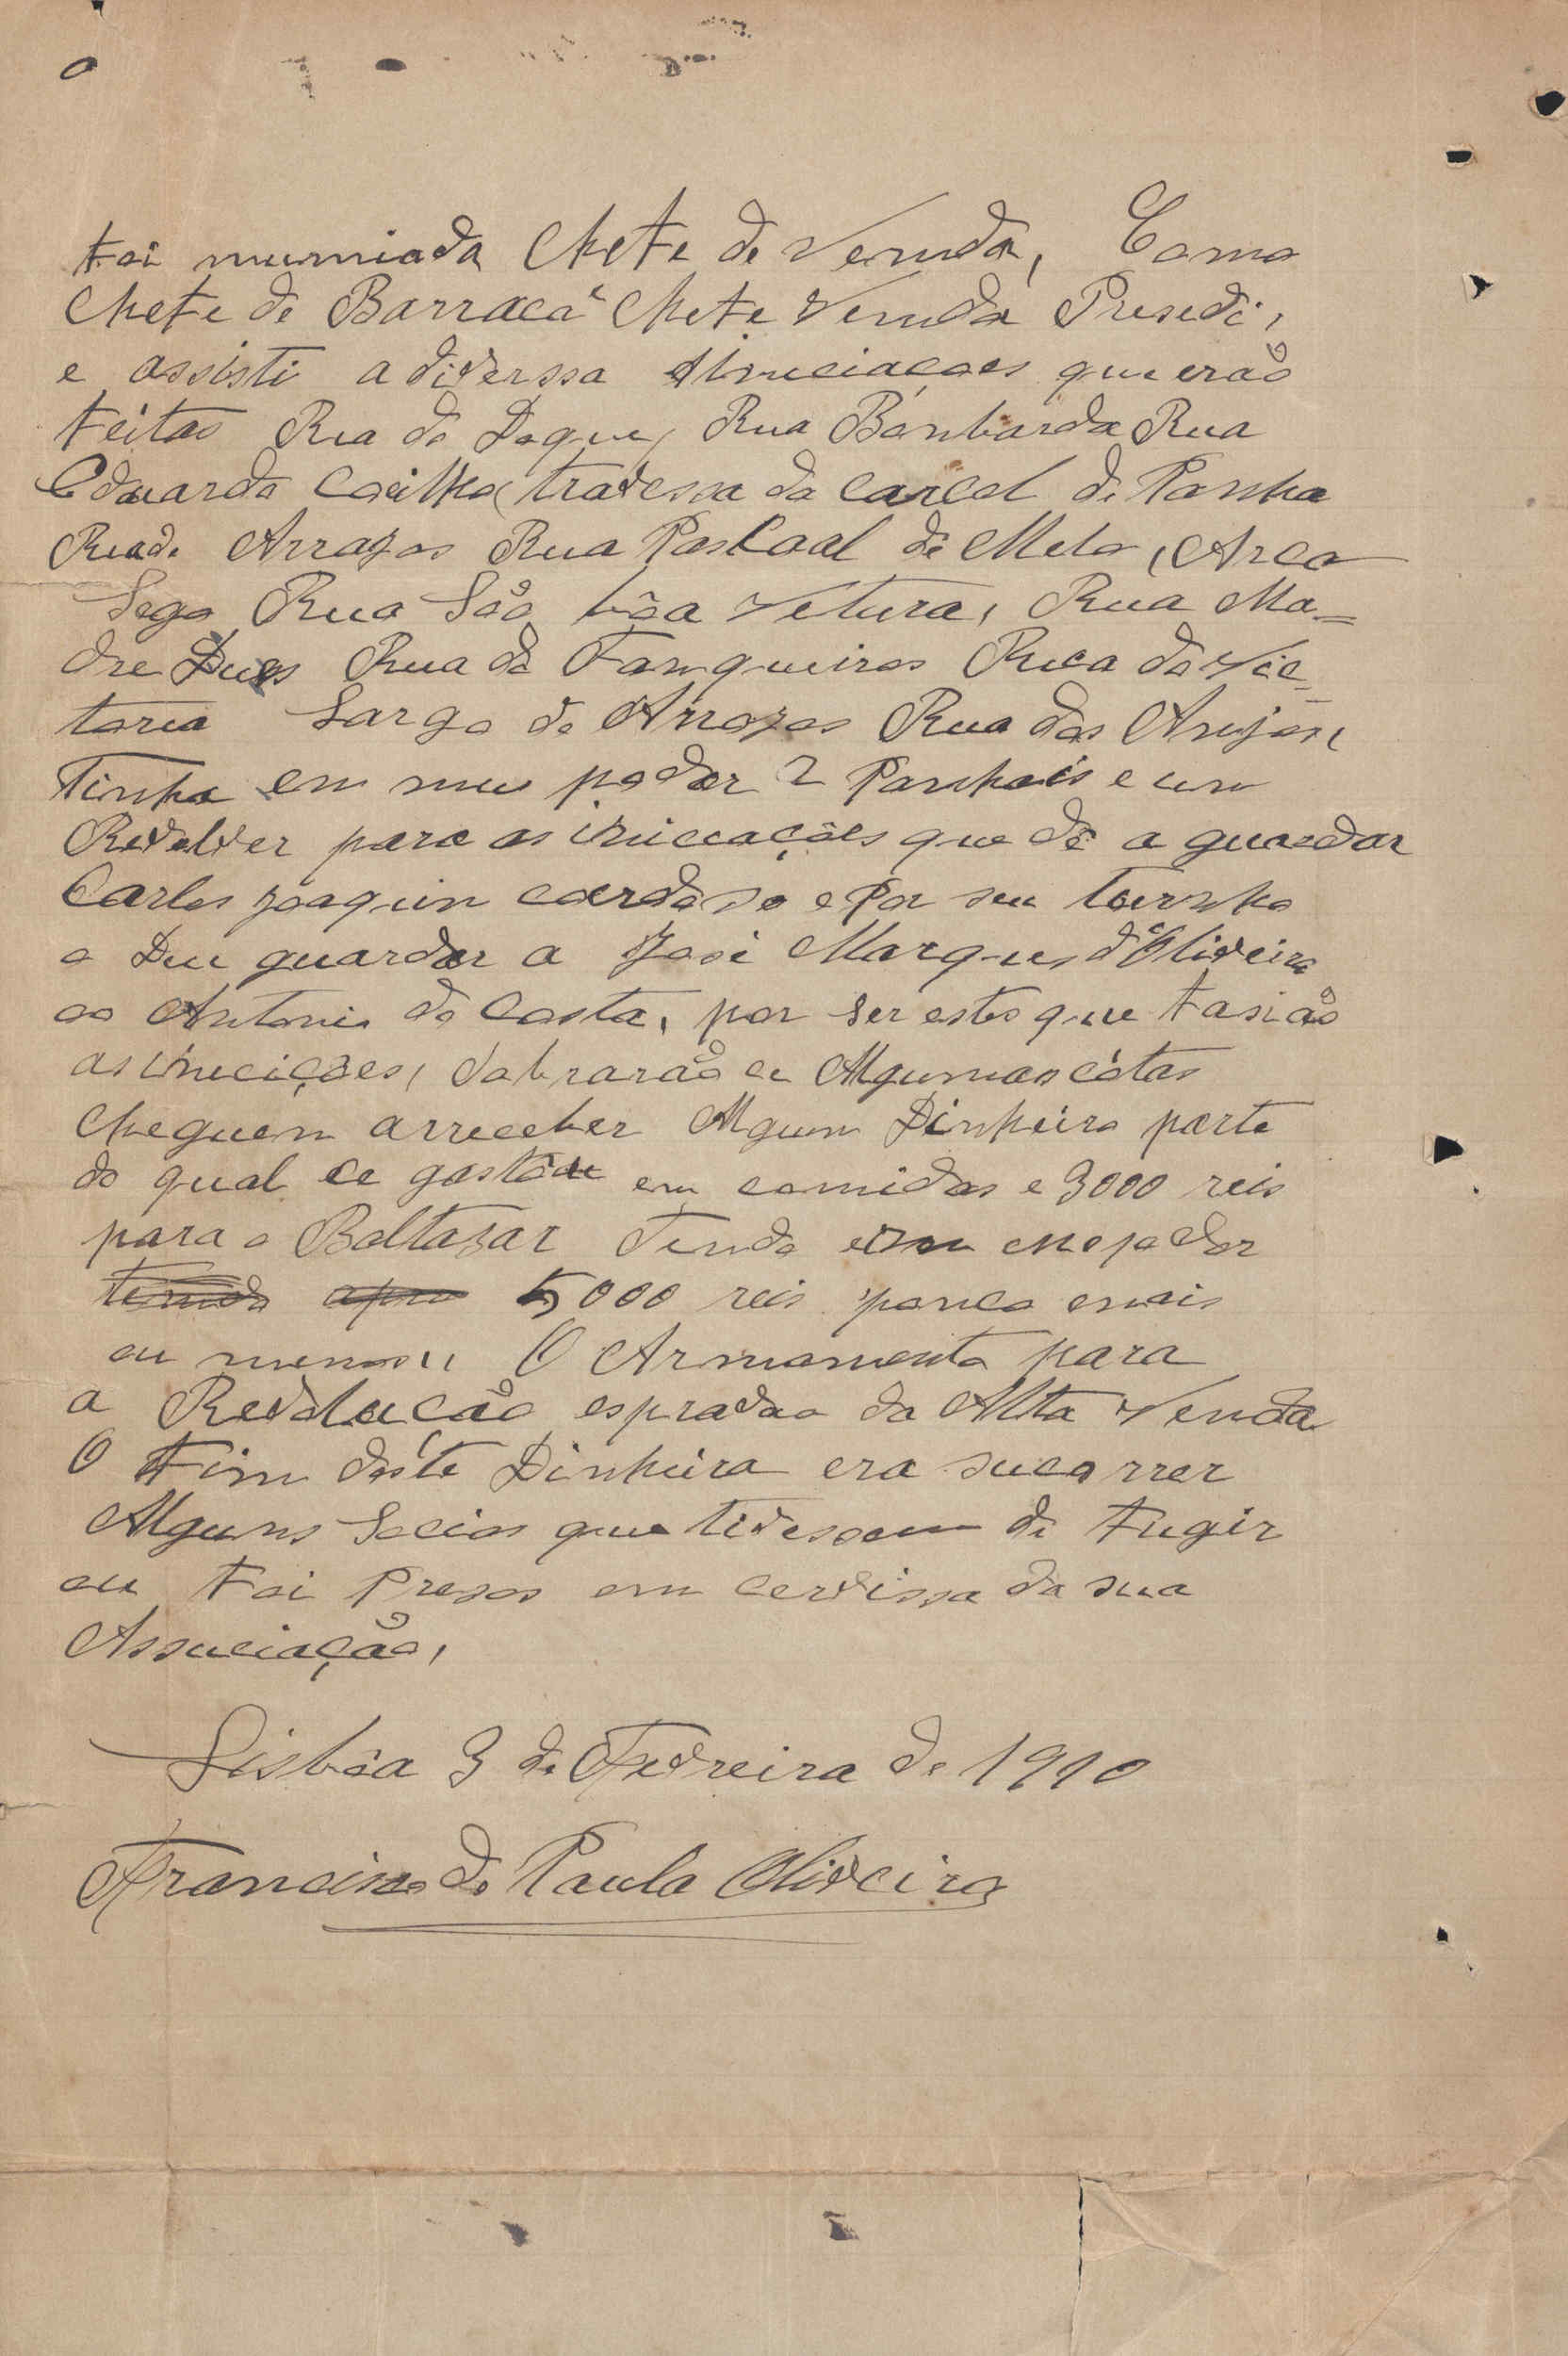 foi numiada Chefe de Venda, Como
Chefe de Barraca e Chefe Venda Presedi,
e assisti a diverssa que erão
feitas Rua do Doque, Rua Bonbarda Rua
Eduardo Coelho, travessa da carcal de Panha
Rua de Arrayos Rua Pascoal de Melo, Arco
Sego Rua São bôa Vetura, Rua Ma=
dre Dues Rua da Fanqueiros Rua da Vic=
toria Largo de Arroyos Rua dos Anjos,
Tinha em meu poder 2 Panhais e um
Revolver para as que de a guardar
Carlos Joaquin cardoso e Por seu
o Deu guardar a José Marques d'Oliveira
ao Antonio da Costa, por ser estes que fasião
as inicições, cobrarão ce Algumas cótas
cheguem arreceber Algum Dinheiro parte
do qual ce gastou em comidas e 3000 reis
para o Baltazar Tendo em
5000 reis pouco mais
ou menos,, O Armamento para
a Revolução espravao da Alta Venda
O Fim déste Dinheiro era sucorrer
Alguns Socios que tivessem de Fugir
ou Foi Presos em cervissa da sua
Associação,
Lisbôa 3 de Fevreiro de 1910
Francisco de Paula Oliveira